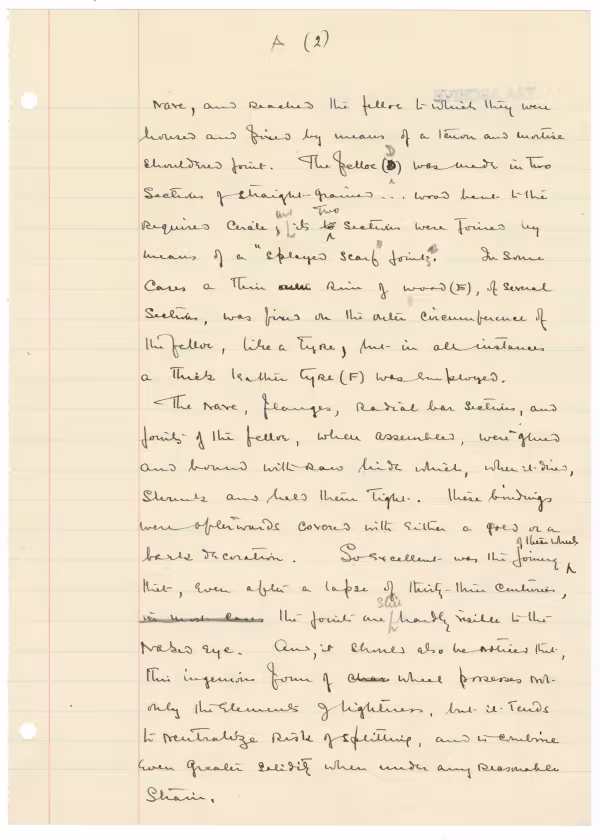 A (2)
Nave, and reached the felloe to which they were
housed and fixed by means of a tenon and mortise
shouldered joint. The felloe (D) was made in two
Sections of straight-grained ... wood bent to the
required circle, and its two sections were joined by
means of a "splayed scarf" joint. In some
cases a thin outer rim of wood (E), of several
sections, was fixed on the outer circumference of
the felloe, like a tyre, but in all instances
a thick leather tyre (F) was employed.
The nave, flanges, radial bar sections, and
joints of the felloe, when assembled, were glued
and bound with raw hide which, when it dried,
shrunk and held them tight. These bindings
were afterwards covered with either a gold or a
bark decoration. So excellent was the joinery of these wheels
that, even after a lapse of thirty-three centuries,
in most cases the joints are still hardly visible to the
naked eye. And, it should also be noticed that,
this ingenious form of wheel possesses not
only the elements of lightness, but it tends
to neutralize risk of splitting, and to combine
even greater solidity when under any reasonable
strain.